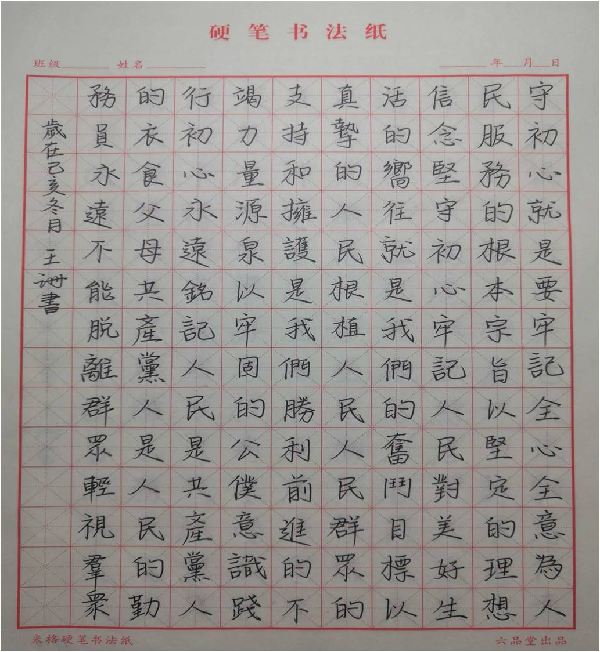 硬笔书法纸
班级 姓名 年 月 日
守初心就是要牢記全心全意為人
民服務的根本宗旨以堅定的理想
信念堅守初心牢記人民對美好生
活的嚮往就是我們的奮鬥目標以
真摯的人民根植人民人民群眾的
支持和擁護是我們勝利前進的不
竭力量源泉以牢固的公僕意識踐
行初心永遠銘記人民是共產黨人
的衣食父母共產黨人是人民的勤
務員永遠不能脫離群眾輕視羣衆
歲在己亥冬月 王珊書
米格硬笔书法纸
六品堂出品